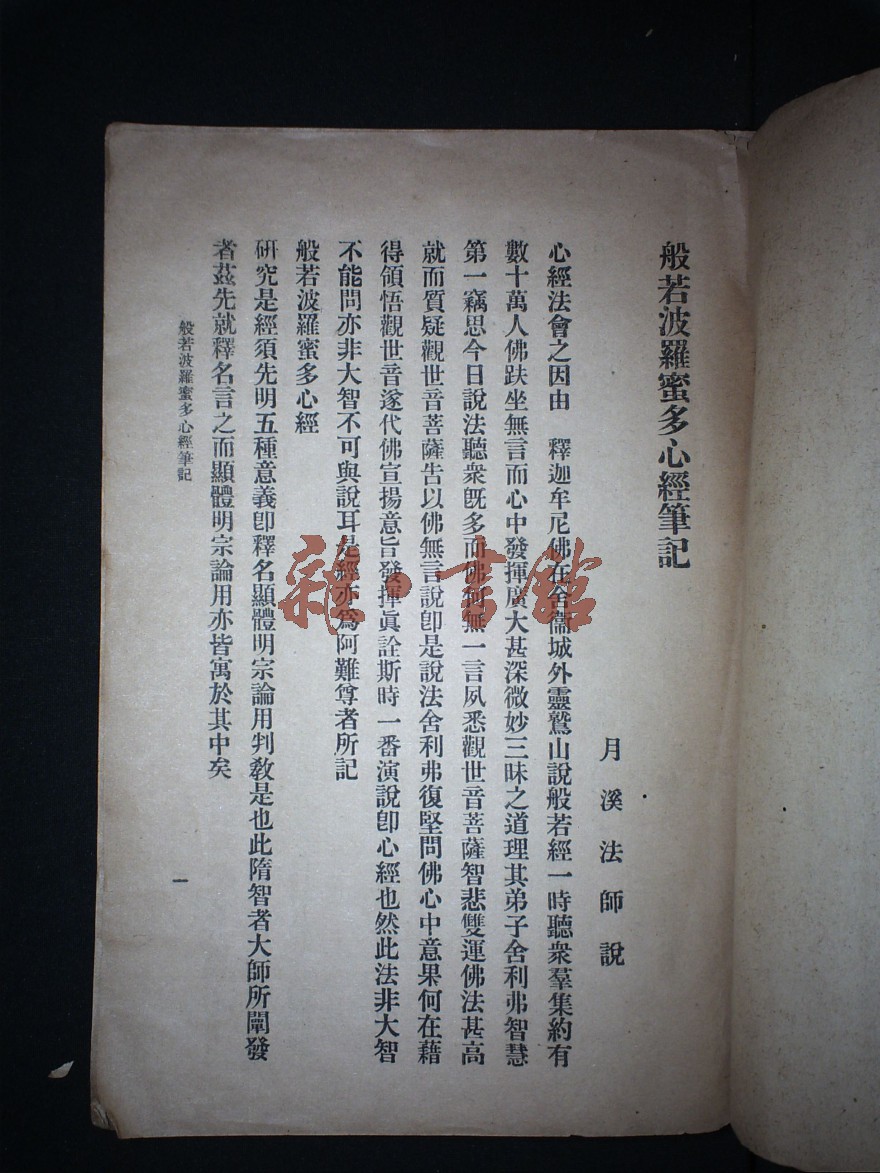 般若波羅蜜多心經筆記
月溪法師說
心經法會之因由　釋迦牟尼佛在舍衞城外靈鷲山說般若經一時聽衆羣集約有
數十萬人佛趺坐無言而心中發揮廣大甚深微妙三昧之道理其弟子舍利弗智慧
第一竊思今日說法聽衆旣多而佛何無一言夙悉觀世音菩薩智悲雙運佛法甚高
就而質疑觀世音菩薩告以佛無言說卽是說法舍利弗復堅問佛心中意果何在藉
得領悟觀世音遂代佛宣揚意旨發揮眞詮斯時一番演說卽心經也然此法非大智
不能問亦非大智不可與說耳是經亦爲阿難尊者所記
般若波羅蜜多心經
硏究是經須先明五種意義卽釋名顯體明宗論用判敎是也此隋智者大師所闡發
者茲先就釋名言之而顯體明宗論用亦皆寓於其中矣
般若波羅蜜多心經筆記
一
雜·書館